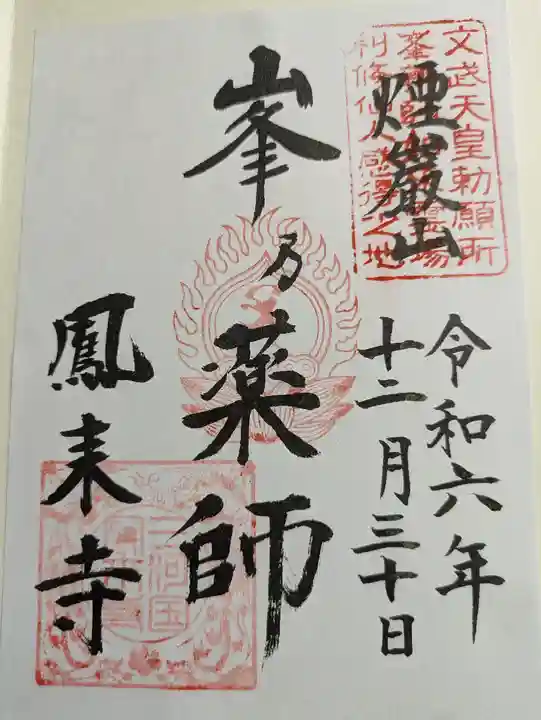 文武天皇勅願所
利修仙人感得之地
煙巖山
令和六年
十二月三十日
峯乃薬師
鳳来寺
三河国